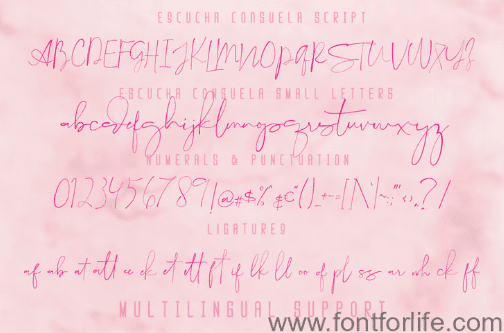 ESCUCHA CONSUELA SCRIPT
ABCDEFGHIJKLMNOPQRSTUVWXYZ
ESCUCHA CONSUELA SMALL LETTERS
abcdefghijklmnopqrstuvwxyz
NUMERALS & PUNCTUATION
0123456789!@#$%^&*()_+-=[]\`|~:;"'<>,.?/
LIGATURES
af ab at att ee ek et ett ft if lk ll oo of pl ss ar wh ck ff
MULTILINGUAL SUPPORT
www.fontforlife.com